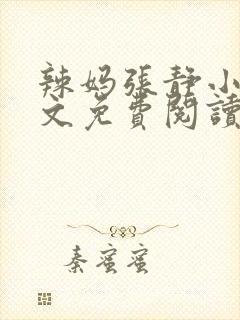 辣妈張靜小
文免費閱讀
秦蜜蜜